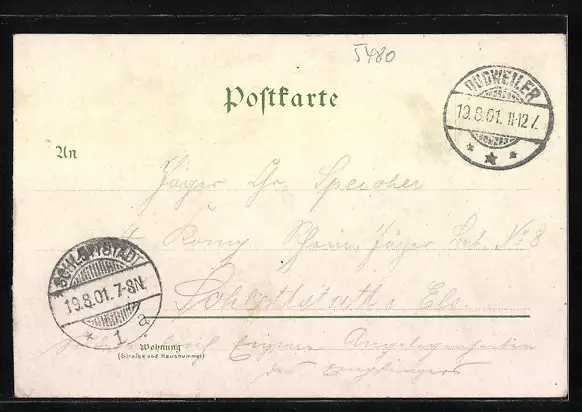 5480
Postkarte
DUDWEILER
19.8.01. 11-12 V.
An
Jäger Gr. Speicher
4. Komp. Rhein. Jäger Bat. No 8
Schlettstadt i Els.
SCHLETTSTADT
19.8.01. 7-8N.
1 a
Wohnung
(Straße und Hausnummer)
Eigene Angelegenheiten
des Empfängers